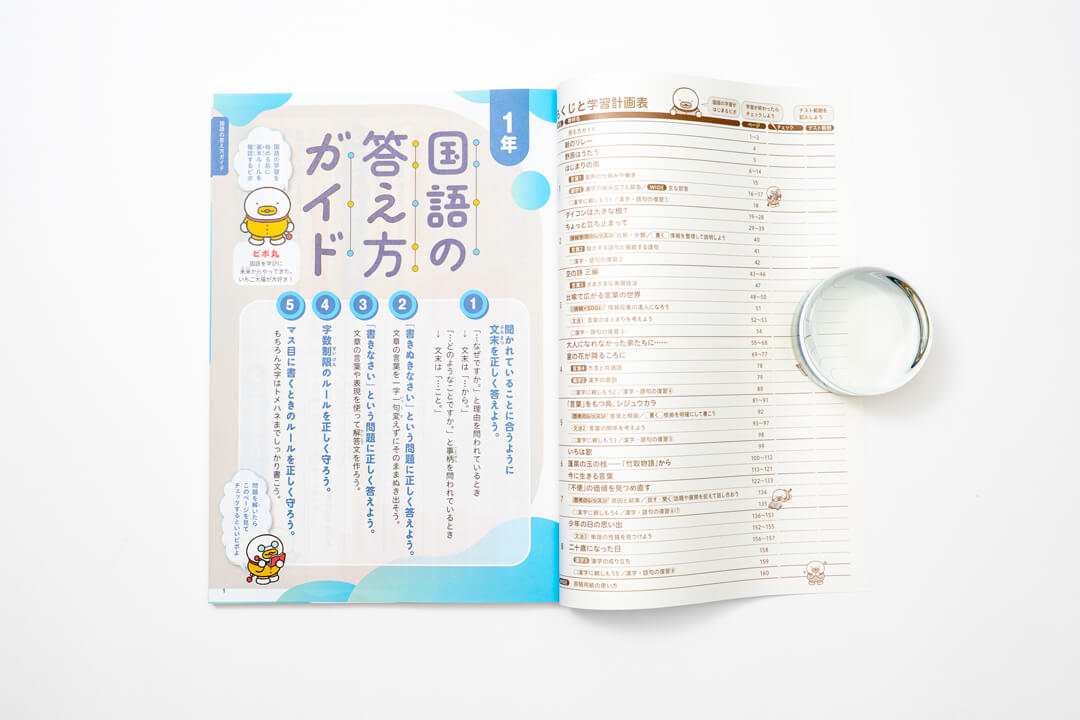 国語の答え方ガイド
1年
国語の
答え方
ガイド
国語の学習を
始める前に
基本ルールを
確認するピポ
ピポ丸
国語を学びに
未来からやってきた。
いちご大福が大好き！
1
聞かれていることに合うように
文末を正しく答えよう。
「…なぜですか。」と理由を問われているとき
→ 文末は「…から。」
「…どのようなことですか。」と事柄を問われているとき
→ 文末は「…こと。」
2
「書きぬきなさい」という問題に正しく答えよう。
文章の言葉を一字一句変えずにそのままぬき出そう。
3
「書きなさい」という問題に正しく答えよう。
文章の言葉や表現を使って解答文を作ろう。
4
字数制限のルールを正しく守ろう。
5
マス目に書くときのルールを正しく守ろう。
もちろん文字はトメハネまでしっかり書こう。
問題を解いたら
このページを見て
チェックするといいピポよ
1
くじと学習計画表
国語の学習が
はじまるピポ
学習が終わったら
チェックしよう
テスト範囲を
記入しよう
教材名 ページ チェック テスト範囲
答え方ガイド 1~3
朝のリレー 4
野原はうたう 5
はじまりの風 6~14
言葉1 音声の仕組みや働き 15
漢字1 漢字の組み立てと部首／WIDE 主な部首 16~17
□漢字に親しもう1／漢字・語句の復習① 18
ダイコンは大きな根？ 19~28
ちょっと立ち止まって 29~39
情報整理のレッスン 比較・分類／書く 情報を整理して説明しよう 40
言葉2 指示する語句と接続する語句 41
□漢字・語句の復習② 42
空の詩 三編 43~46
言葉3 さまざまな表現技法 47
比喩で広がる言葉の世界 48~50
情報×SDGs／情報収集の達人になろう 51
文法1 言葉のまとまりを考えよう 52~53
□漢字・語句の復習③ 54
大人になれなかった弟たちに…… 55~68
星の花が降るころに 69~77
言葉4 方言と共通語 78
漢字2 漢字の音訓 79
□漢字に親しもう2／漢字・語句の復習④ 80
「言葉」をもつ鳥、シジュウカラ 81~91
思考のレッスン 意見と根拠／書く 根拠を明確にして書こう 92
文法2 言葉の関係を考えよう 93~97
□漢字に親しもう3／漢字・語句の復習⑤ 98
いろは歌 99
蓬莱の玉の枝――「竹取物語」から 100~112
今に生きる言葉 113~121
「不便」の価値を見つめ直す 122~133
思考のレッスン 原因と結果／話す・聞く 話題や展開を捉えて話し合おう 134
□漢字に親しもう4／漢字・語句の復習⑥⑦ 135
少年の日の思い出 136~151
文法3 単語の性質を見つけよう 152~155
二十歳になった日 156~157
漢字3 漢字の成り立ち 158
□漢字に親しもう5／漢字・語句の復習⑧ 159
原稿用紙の使い方 160